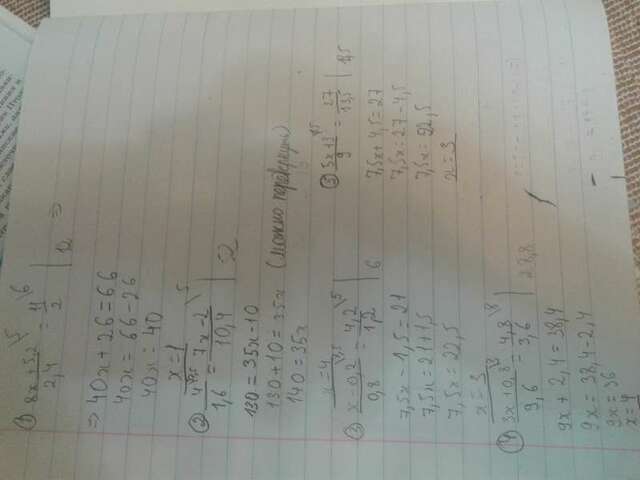 ① (8x+5,2)/2,4 \5 = 11/2 \6 | 12 ⇒
⇒ 40x + 26 = 66
40x = 66 - 26
40x = 40
x = 1
② 4/1,6 = (7x-2)/10,4 \5 |
130 = 35x - 10
130 + 10 = 35x (можно перевернуть)
140 = 35x
x = 4
③ (x-0,2)/0,8 \7,5 = 4,2/1,2 \5 | 6
7,5x - 1,5 = 21
7,5x = 21 + 1,5
7,5x = 22,5
x = 3
④ (3x+0,8)/9,6 \3 = 4,8/3,6 \8 | 28,8
9x + 2,4 = 38,4
9x = 38,4 - 2,4
9x = 36
x = 4
⑤ (5x+3)/9 \1,5 = 27/13,5 | 13,5
7,5x + 4,5 = 27
7,5x = 27 - 4,5
7,5x = 22,5
x = 3